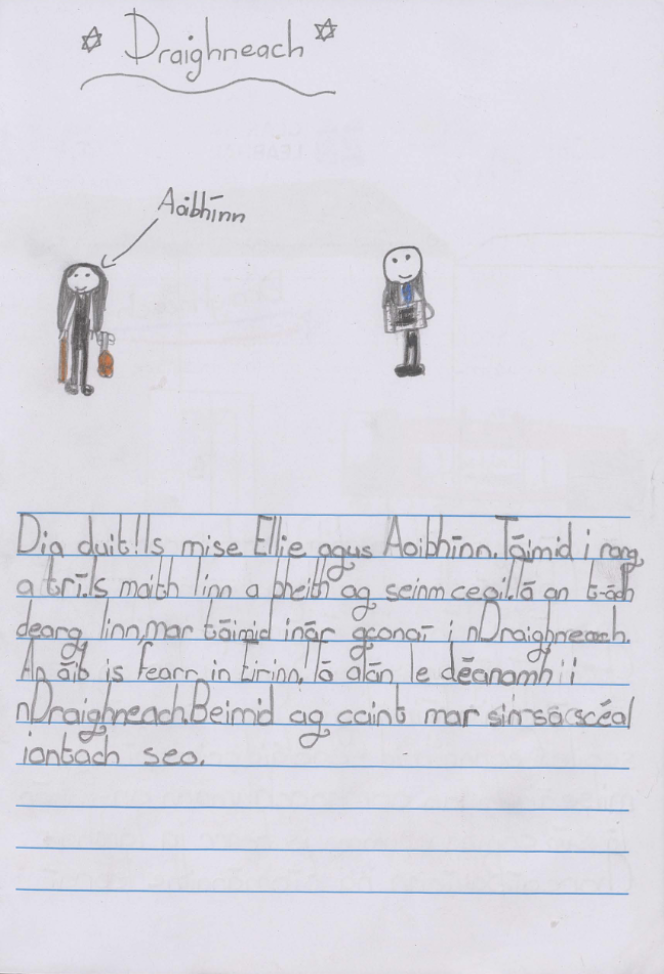 Draighneach
Aoibhīnn
Dia duit! Is mise Ellie agus Aoibhīnn. Tāimid i rang
a trī. Is maith linn a bheith ag seinm ceoil. Tā an t-ādh
dearg linn, mar tāimid inār gconaī i nDraighneach.
An āib is fearr in Eirinn! Tā alān le dēanamh i
nDraighneach. Beimid ag caint mar sin sa scéal
iontach seo.